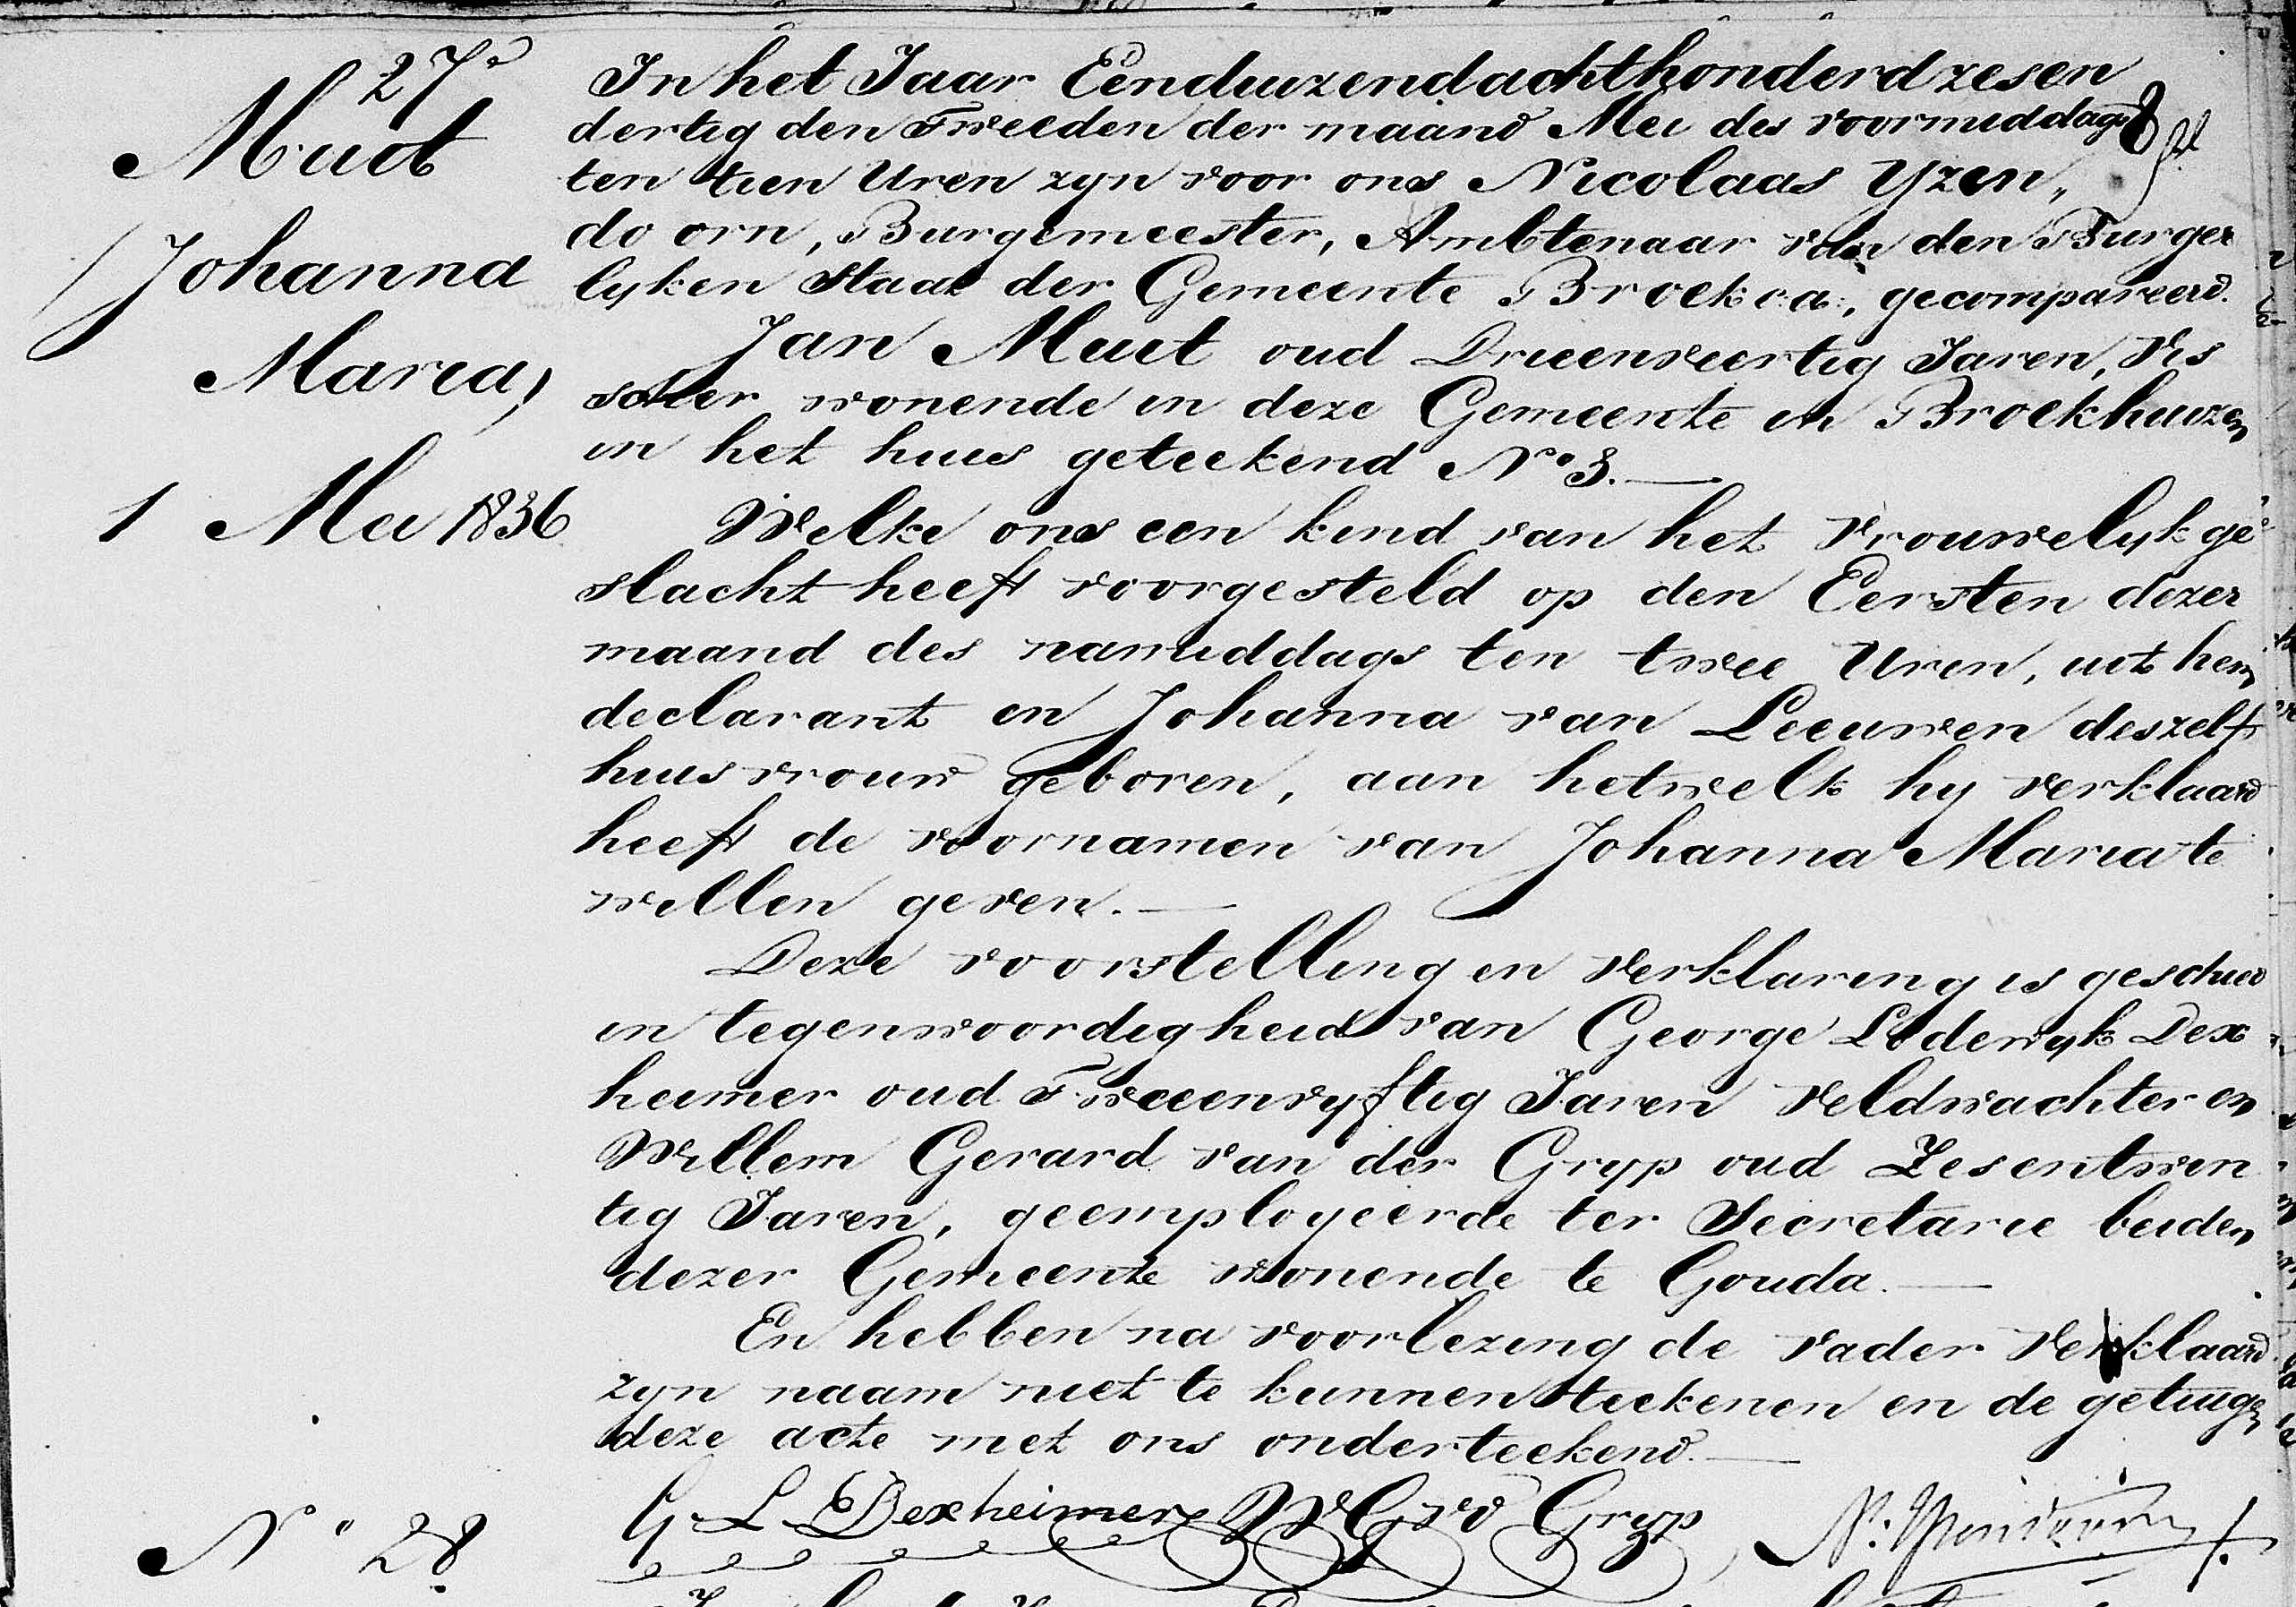 27e
Muit
Johanna
Maria,
1 Mei 1836
In het Jaar Eenduizendachthonderdzesen
dertig den Tweeden der maand Mei des voormiddags
ten tien Uren zyn voor ons Nicolaas Yzen„
doorn, Burgemeester, Ambtenaar van den Burger
lyken Staat der Gemeente Broek c.a., gecompareerd.
Jan Muit oud Drieenveertig Jaren, Vis
scher wonende in deze Gemeente in Broekhuizen
in het huis geteekend No 3.—
Welke ons een kind van het Vrouwelyk ge
slacht heeft voorgesteld op den Eersten dezer
maand des namiddags ten twee Uren, uit hem
declarant en Johanna van Leeuwen deszelfs
huisvrouw geboren, aan hetwelk hy verklaard
heeft de voornamen van Johanna Maria te
willen geven.—
Deze voorstelling en verklaring is geschied
in tegenwoordigheid van George Lodewyk Dex
heimer oud Tweeenvyftig Jaren Veldwachter en
Willem Gerard van der Gryp oud Zesentwin
tig Jaren, geemployeerde ter Secretarie beiden
dezer Gemeente wonende te Gouda.—
En hebben na voorlezing de vader verklaard
zyn naam niet te kunnen teekenen en de getuigen
deze acte met ons onderteekend.—
G. L. Dexheimer W G v d Gryp N. IJzendoorn
No 28